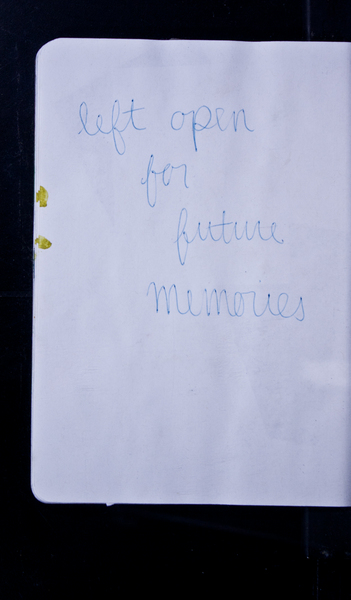 left open
for
future
memories